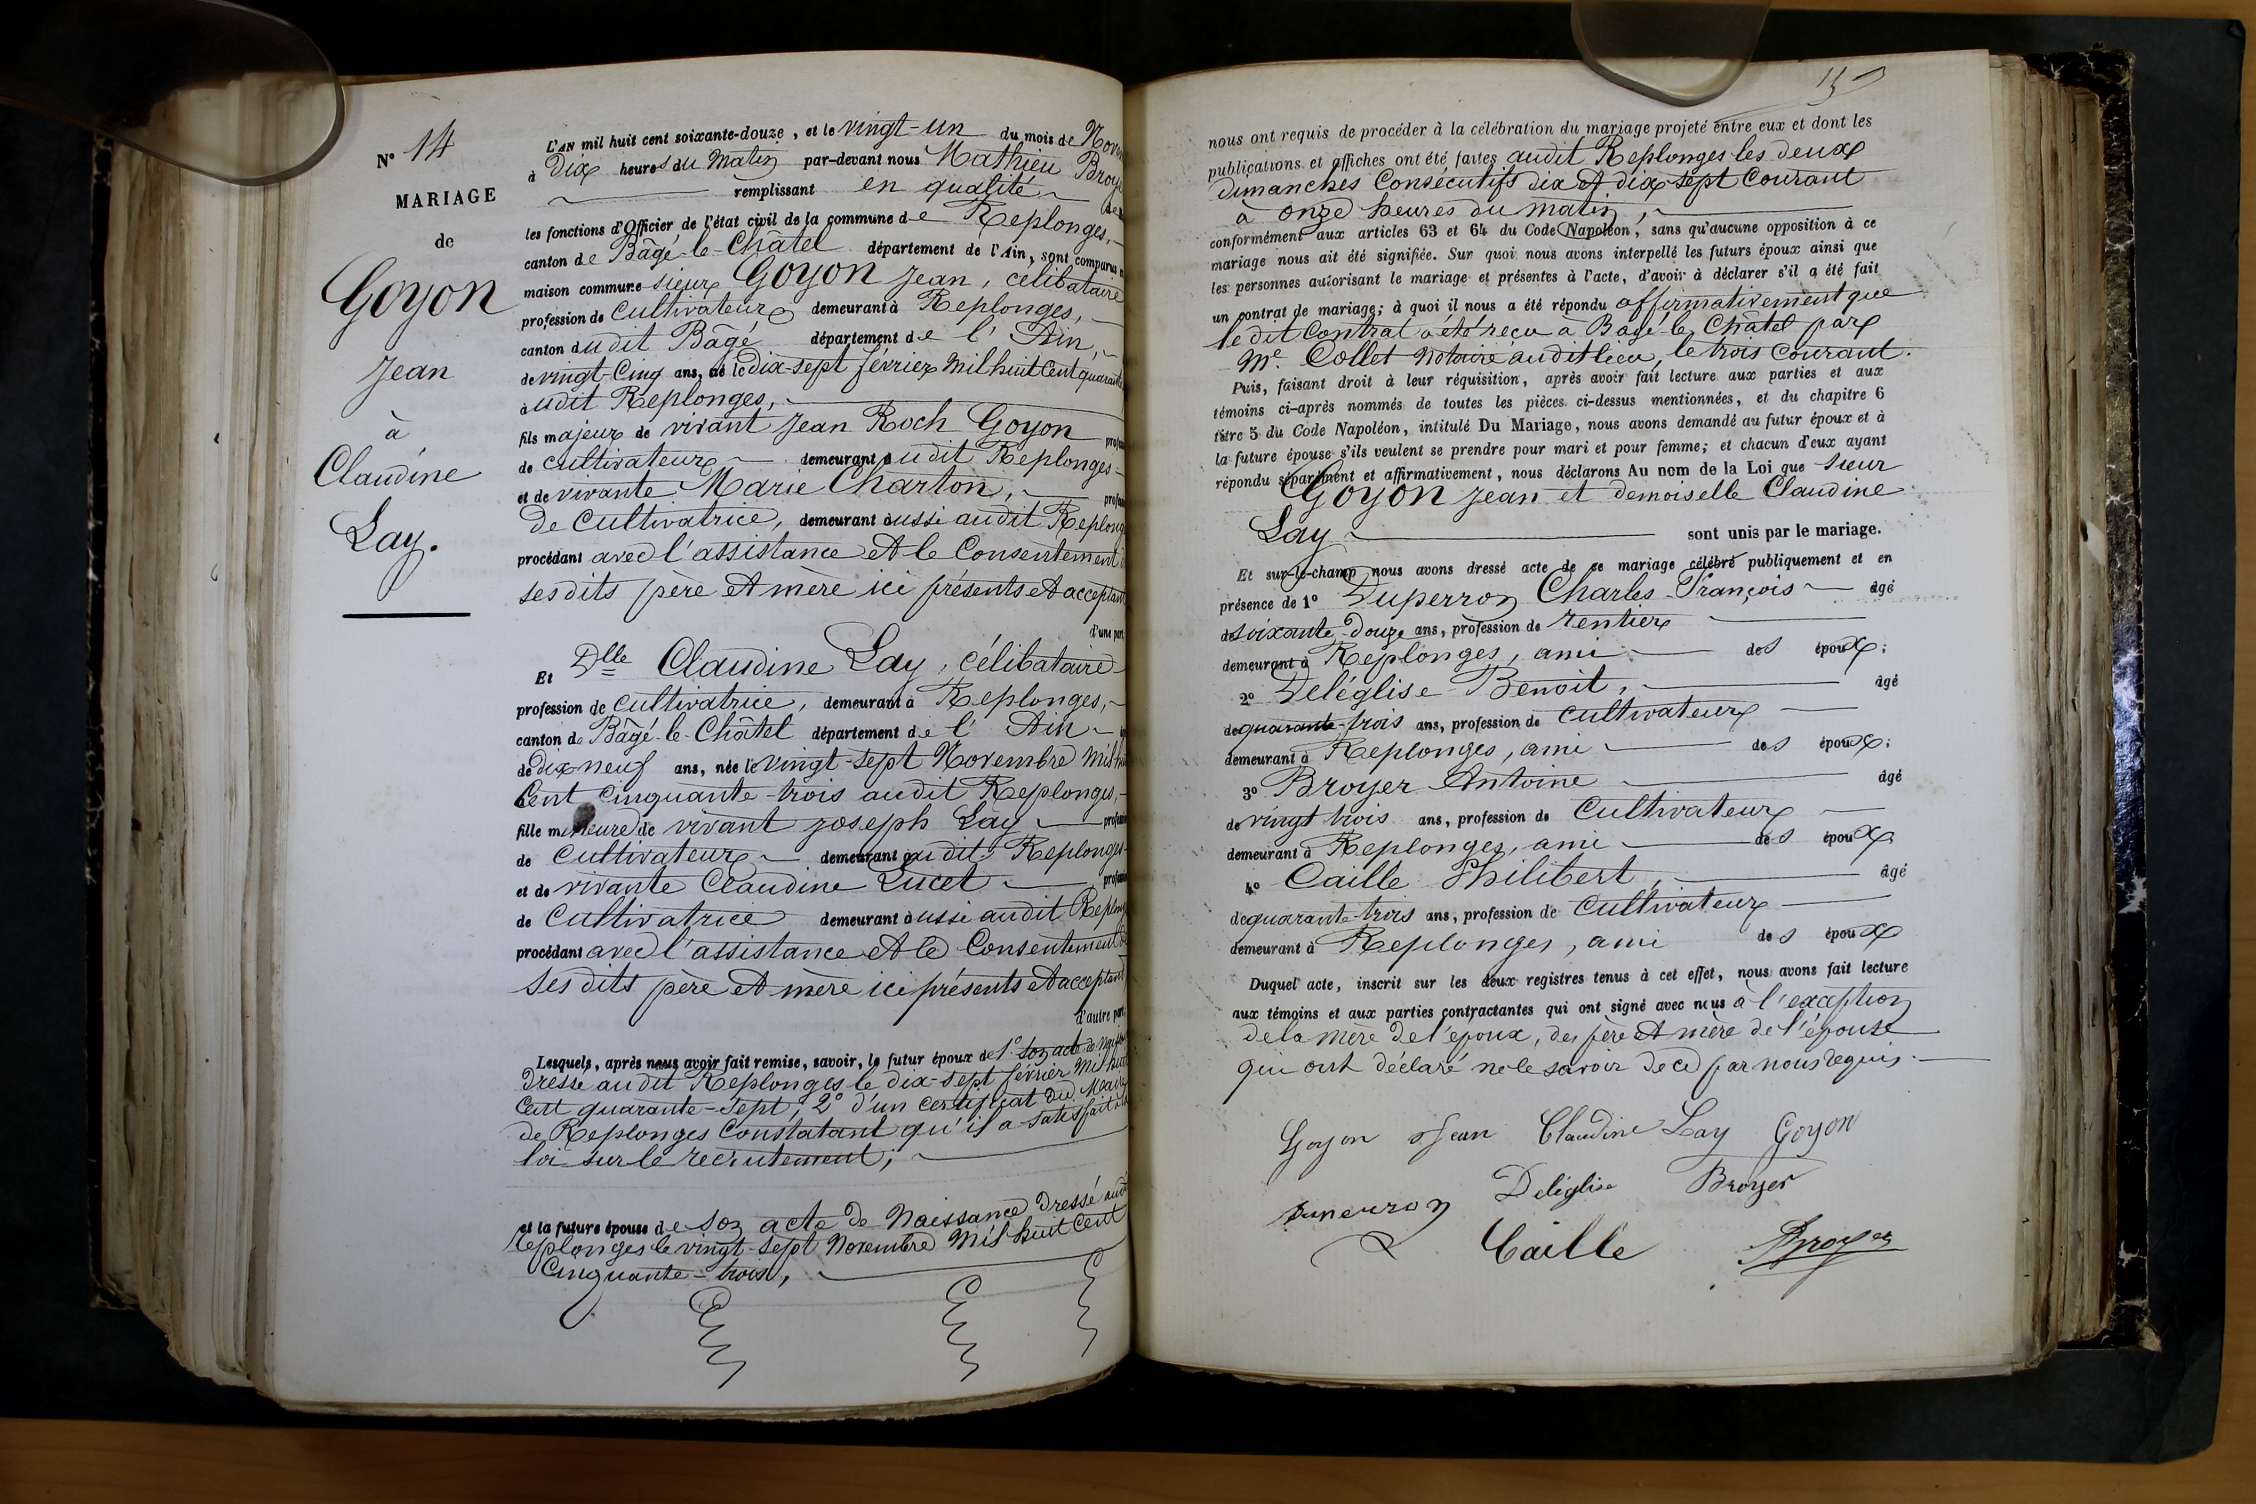 N° 14
MARIAGE
de
Goyon
Jean
à
Claudine
Lay.
L'AN mil huit cent soixante-douze, et le vingt-un du mois de
à Dix heures du Matin par-devant nous Mathieu
remplissant en qualité
les fonctions d'Officier de l'état civil de la commune de Replonges,
canton de Bâgé-le-Châtel département de l'Ain, sont comparus
maison commune sieur Goyon Jean, célibataire
profession de Cultivateur demeurant à Replonges,
canton dudit Bâgé département de l'Ain,
de vingt-Cinq ans, né le Dix-sept février Mil huit Cent
audit Replonges,
fils majeur de vivant Jean Roch Goyon
de cultivateur demeurant audit Replonges
et de vivante Marie Charton,
de cultivatrice, demeurant aussi audit
procédant avec l'assistance et le Consentement
ses dits père et mère ici présents et
d'une part
Et Dlle Claudine Lay, célibataire
profession de cultivatrice, demeurant à Replonges,
canton de Bâgé-le-Châtel département de l'Ain
de dix neuf ans, née le vingt-sept Novembre
Cent cinquante-trois audit Replonges,
fille mineure de vivant Joseph Lay
de cultivateur demeurant audit Replonges
et de vivante Claudine Lucet
de cultivatrice demeurant aussi audit
procédant avec l'assistance et le Consentement
ses dits père et mère ici présents et
d'autre part
Lesquels, après nous avoir fait remise, savoir, le futur époux de 1° son acte de
Dressé audit Replonges le dix-sept février Mil
Cent quarante-sept, 2° d'un certificat du
de Replonges Constatant qu'il a satisfait
loi sur le recrutement;
et la future épouse de son acte de Naissance Dressé
Replonges le vingt-sept Novembre Mil huit Cent
Cinquante-trois,
nous ont requis de procéder à la célébration du mariage projeté entre eux et dont les
publications et affiches ont été faites audit Replonges les deux
dimanches Consécutifs dix et dix-sept courant
à onze heures du matin,
conformément aux articles 63 et 64 du Code Napoléon, sans qu'aucune opposition à ce
mariage nous ait été signifiée. Sur quoi nous avons interpellé les futurs époux ainsi que
les personnes autorisant le mariage et présentes à l'acte, d'avoir à déclarer s'il a été fait
un contrat de mariage; à quoi il nous a été répondu affirmativement que
le dit Contrat a été reçu à Bâgé le Châtel par
Me. Collet Notaire audit lieu, le trois courant.
Puis, faisant droit à leur réquisition, après avoir fait lecture aux parties et aux
témoins ci-après nommés de toutes les pièces ci-dessus mentionnées, et du chapitre 6
titre 5 du Code Napoléon, intitulé Du Mariage, nous avons demandé au futur époux et à
la future épouse s'ils veulent se prendre pour mari et pour femme; et chacun d'eux ayant
répondu séparément et affirmativement, nous déclarons Au nom de la Loi que sieur
Goyon Jean et demoiselle Claudine
Lay sont unis par le mariage.
Et sur-le-champ nous avons dressé acte de ce mariage célébré publiquement et en
présence de 1° Duperron Charles-François âgé
de soixante-douze ans, profession de rentier
demeurant à Replonges, ami des époux;
2° Deléglise Benoit, âgé
de quarante-trois ans, profession de cultivateur
demeurant à Replonges, ami des époux;
3° Broyer Antoine âgé
de vingt trois ans, profession de Cultivateur
demeurant à Replonges, ami des époux
4° Caille Philibert, âgé
de quarante-trois ans, profession de Cultivateur
demeurant à Replonges, ami des époux
Duquel acte, inscrit sur les deux registres tenus à cet effet, nous avons fait lecture
aux témoins et aux parties contractantes qui ont signé avec nous à l'exception
de la mère de l'époux, des père et mère de l'épouse
qui ont déclaré ne le savoir de ce par nous requis.
Goyon Jean Claudine Lay Goyon
Deléglise Broyer
Duperron
Caille Broyer